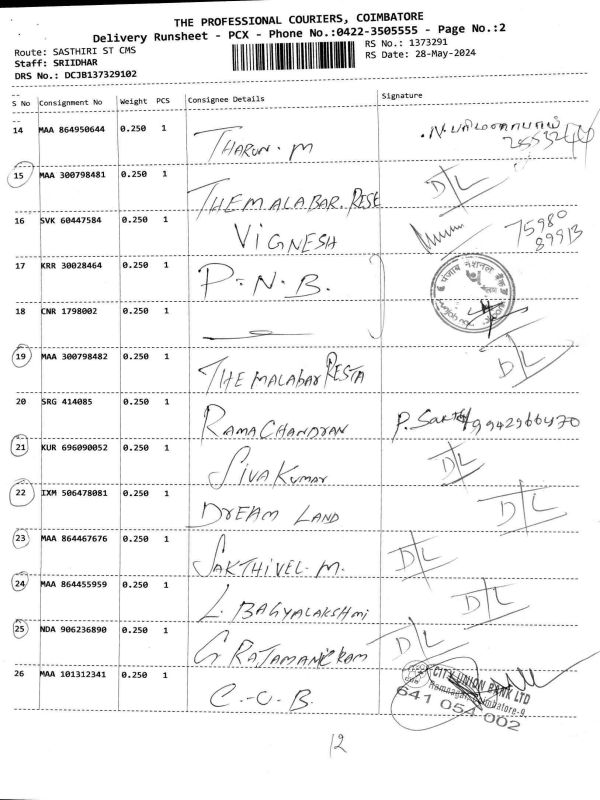 THE PROFESSIONAL COURIERS, COIMBATORE
Delivery Runsheet - PCX - Phone No.:0422-3505555 - Page No.:2
Route: SASTHIRI ST CMS
RS No.: 1373291
Staff: SRIIDHAR
RS Date: 28-May-2024
DRS No.: DCJB137329102
S No Consignment No Weight PCS Consignee Details Signature
14 MAA 864950644 0.250 1 THARUN. M
15 MAA 300798481 0.250 1 THEMALABAR. RESE D/L
16 SVK 60447584 0.250 1 VIGNESH 75980
89913
17 KRR 30028464 0.250 1 P.N.B. पंजाब नेशनल बैंक
18 CNR 1798002 0.250 1
19 MAA 300798482 0.250 1 THE MALABAR RESTA D/L
20 SRG 414085 0.250 1 RAMACHANDRAN P. Sakthi 9942966470
21 KUR 696090052 0.250 1 SIVAKUMAR D/L
22 IXM 506478081 0.250 1 DREAM LAND D/L
23 MAA 864467676 0.250 1 SAKTHIVEL. M. D/L
24 MAA 864455959 0.250 1 L. BAGYALAKSHMI D/L
25 NDA 906236890 0.250 1 G RAJAMANICKAM D/L
26 MAA 101312341 0.250 1 C.U.B. CITY UNION BANK LTD
Ramnagar, Coimbatore-9.
641 054 002
12